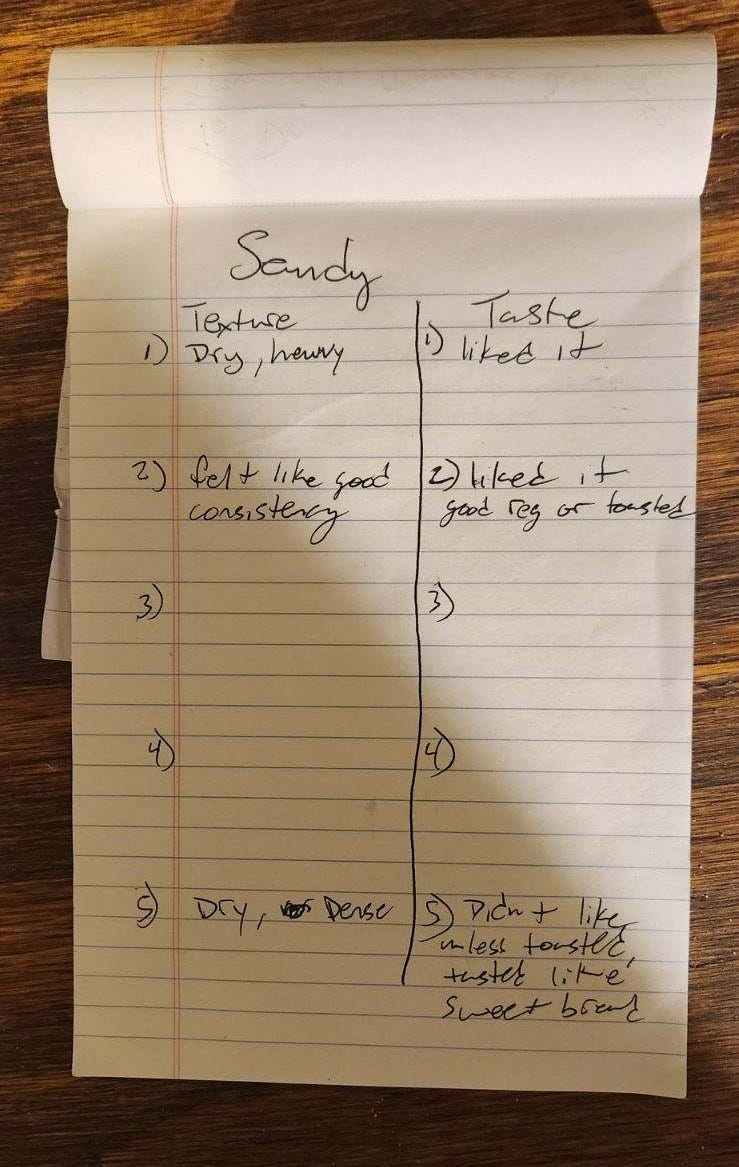 Sandy
Texture
Taste
1) Dry, heavy
1) liked it
2) felt like good
consistency
2) liked it
good reg or toasted
3)
3)
4)
4)
5) Dry, Dense
5) Didn't like
unless toasted,
tasted like
sweet bread